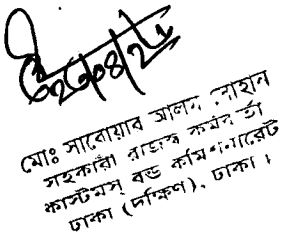 ২৩/০৪/২৬
মোঃ সারোয়ার আলম সোহান
সহকারী রাজস্ব কর্মকর্তা
কাস্টমস্ বন্ড কমিশনারেট
ঢাকা (দক্ষিণ), ঢাকা।